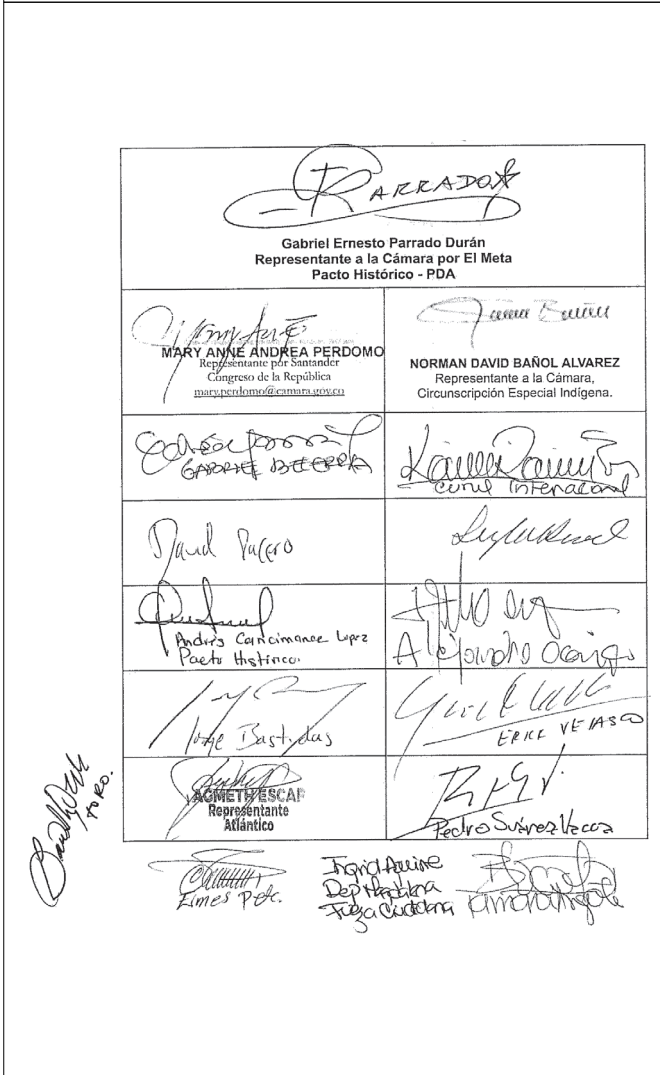 PARRADO
Gabriel Ernesto Parrado Durán
Representante a la Cámara por El Meta
Pacto Histórico - PDA
MARY ANNE ANDREA PERDOMO
Representante por Santander
Congreso de la República
mary.perdomo@camara.gov.co
NORMAN DAVID BAÑOL ALVAREZ
Representante a la Cámara,
Circunscripción Especial Indígena.
GABRIEL BECERRA
curul Internacional
David Racero
Andrés Cancimance Lopez
Pacto Histórico.
Alejandro Ocampo
Jorge Bastidas
ERICK VELASCO
AGMETH ESCAF
Representante
Atlántico
Pedro Suárez Vacca
TORO.
Eimes Pete.
Ingrid Aguirre
Dep Magdalena
Fuerza Ciudadana